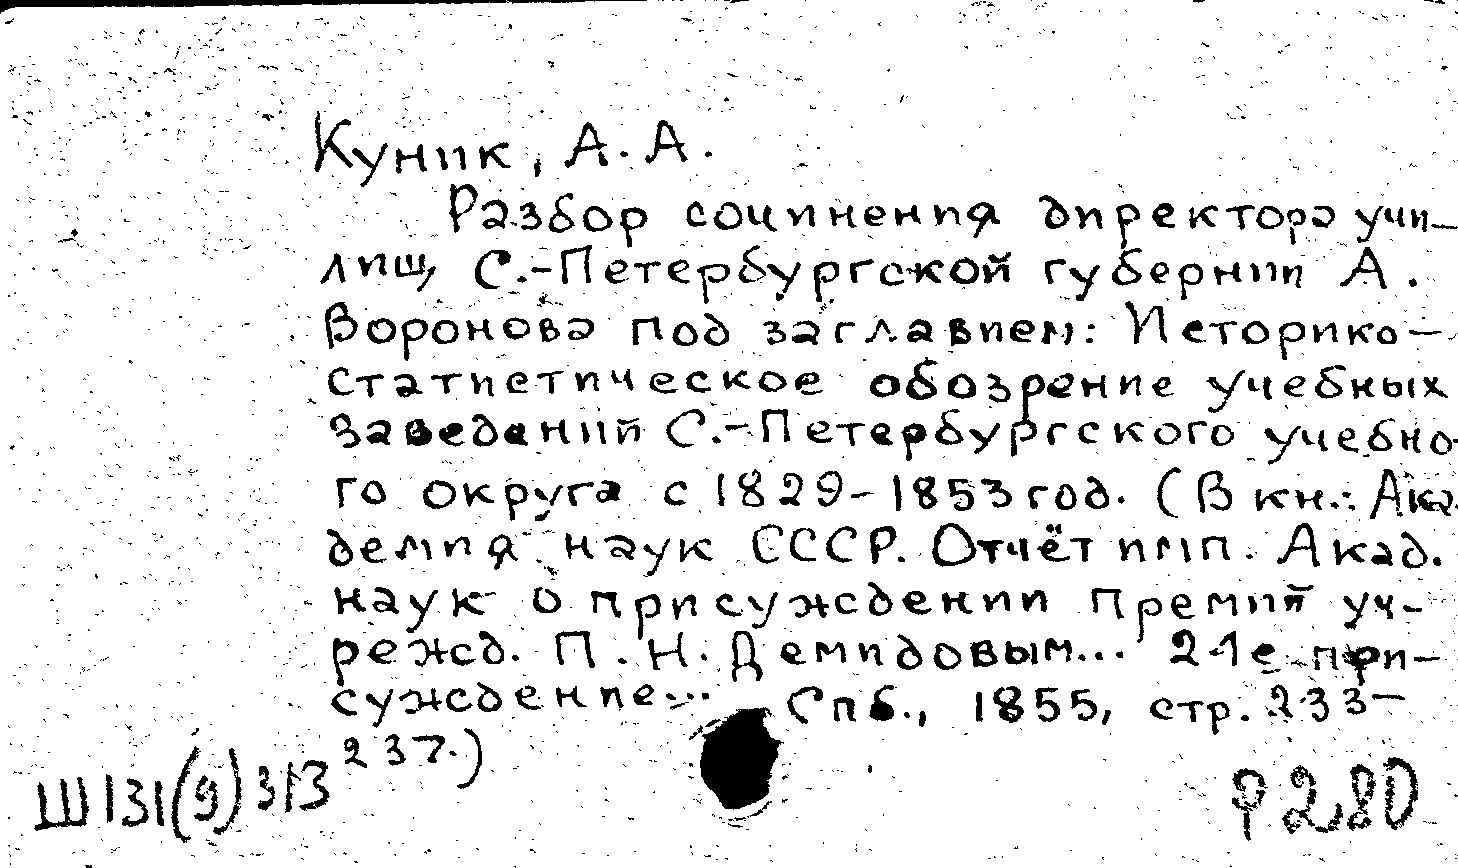 Куник, А. А.
Разбор сочинения директора учи-
лищ С.-Петербургской губернии А.
Воронова под заглавием: Историко-
статистическое обозрение учебных
заведений С.-Петербургского учебно-
го округа с 1829-1853 год. (В кн.: Ака-
демия наук СССР. Отчёт имп. Акад.
наук о присуждении премий уч-
режд. П. Н. Демидовым... 21е при-
суждение... Спб., 1855, стр. 233-
237.)
Ш131(9)313
Р280